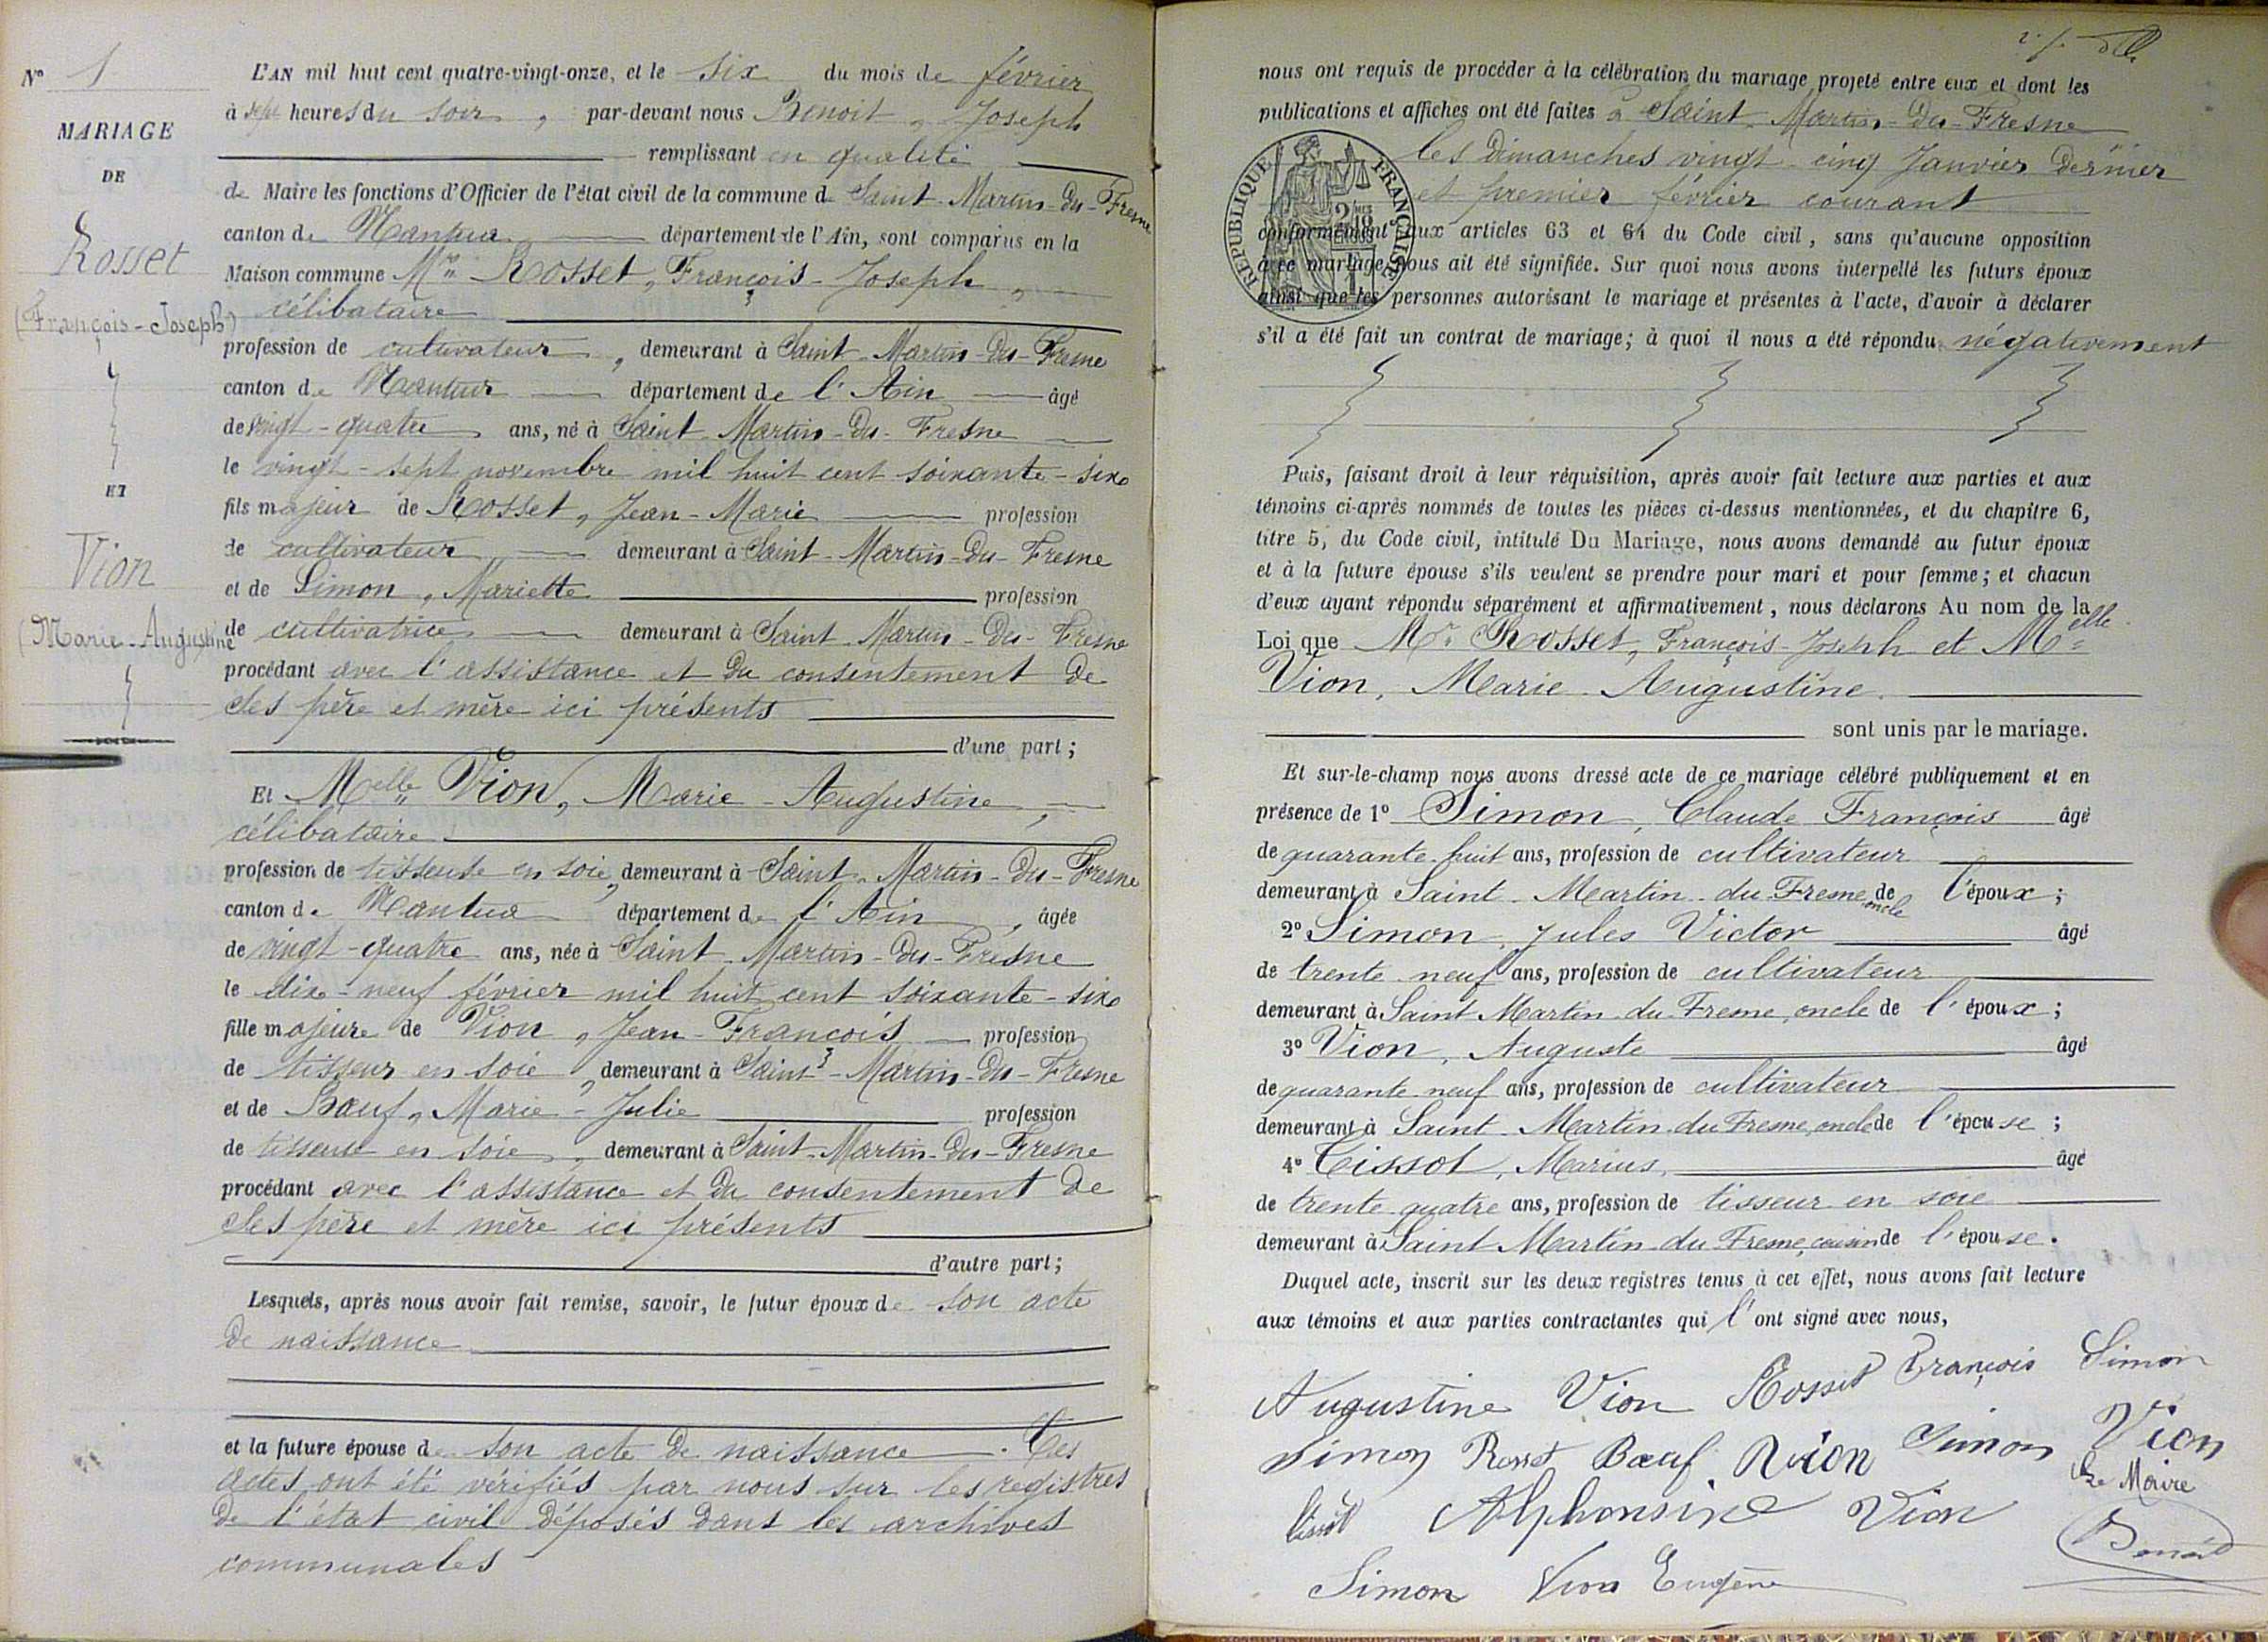 N° 1
MARIAGE
DE
Rosset
(François-Joseph)
ET
Vion
(Marie-Augustine
L'AN mil huit cent quatre-vingt-onze, et le six du mois de février
à sept heures du soir, par-devant nous Benoit, Joseph
remplissant en qualité
de Maire les fonctions d'Officier de l'état civil de la commune de Saint-Martin-du-Fresne
canton de Nantua département de l'Ain, sont comparus en la
Maison commune Mr Rosset, François-Joseph,
célibataire
profession de cultivateur, demeurant à Saint-Martin-du-Fresne
canton de Nantua département de l'Ain âgé
de vingt-quatre ans, né à Saint-Martin-du-Fresne
le vingt-sept novembre mil huit cent soixante-six
fils majeur de Rosset, Jean-Marie profession
de cultivateur demeurant à Saint-Martin-du-Fresne
et de Simon, Mariette profession
de cultivatrice demeurant à Saint-Martin-du-Fresne
procédant avec l'assistance et du consentement de
ses père et mère ici présents
d'une part;
Et Melle Vion, Marie-Augustine,
célibataire
profession de tisseuse en soie, demeurant à Saint-Martin-du-Fresne
canton de Nantua département de l'Ain, âgée
de vingt-quatre ans, née à Saint-Martin-du-Fresne
le dix-neuf février mil huit cent soixante-six
fille majeure de Vion, Jean-François profession
de tisseur en soie, demeurant à Saint-Martin-du-Fresne
et de Bœuf, Marie-Julie profession
de tisseuse en soie, demeurant à Saint-Martin-du-Fresne
procédant avec l'assistance et du consentement de
ses père et mère ici présents
d'autre part;
Lesquels, après nous avoir fait remise, savoir, le futur époux de son acte
de naissance
et la future épouse de son acte de naissance. Ces
actes ont été vérifiés par nous sur les registres
de l'état civil déposés dans les archives
communales
nous ont requis de procéder à la célébration du mariage projeté entre eux et dont les
publications et affiches ont été faites à Saint-Martin-du-Fresne
les dimanches vingt-cinq Janvier dernier
et premier février courant
RÉPUBLIQUE FRANÇAISE
conformément aux articles 63 et 64 du Code civil, sans qu'aucune opposition
à ce mariage nous ait été signifiée. Sur quoi nous avons interpellé les futurs époux
ainsi que les personnes autorisant le mariage et présentes à l'acte, d'avoir à déclarer
s'il a été fait un contrat de mariage; à quoi il nous a été répondu négativement
Puis, faisant droit à leur réquisition, après avoir fait lecture aux parties et aux
témoins ci-après nommés de toutes les pièces ci-dessus mentionnées, et du chapitre 6,
titre 5, du Code civil, intitulé Du Mariage, nous avons demandé au futur époux
et à la future épouse s'ils veulent se prendre pour mari et pour femme; et chacun
d'eux ayant répondu séparément et affirmativement, nous déclarons Au nom de la
Loi que Mr Rosset, François-Joseph et Melle
Vion, Marie-Augustine.
sont unis par le mariage.
Et sur-le-champ nous avons dressé acte de ce mariage célébré publiquement et en
présence de 1° Simon, Claude François âgé
de quarante-huit ans, profession de cultivateur
demeurant à Saint-Martin-du-Fresne oncle de l'époux;
2° Simon, Jules Victor âgé
de trente-neuf ans, profession de cultivateur
demeurant à Saint Martin-du-Fresne, oncle de l'époux;
3° Vion, Auguste âgé
de quarante-neuf ans, profession de cultivateur
demeurant à Saint-Martin-du-Fresne, oncle de l'épouse;
4° Tissot, Marius, âgé
de trente-quatre ans, profession de tisseur en soie
demeurant à Saint Martin-du-Fresne, cousin de l'épouse.
Duquel acte, inscrit sur les deux registres tenus à cet effet, nous avons fait lecture
aux témoins et aux parties contractantes qui l'ont signé avec nous,
Augustine Vion Rosset François Simon
Simon Rosset Bœuf Vion Simon Vion
Le Maire
Tissot Alphonsine Vion Benoit
Simon Vion Eugène